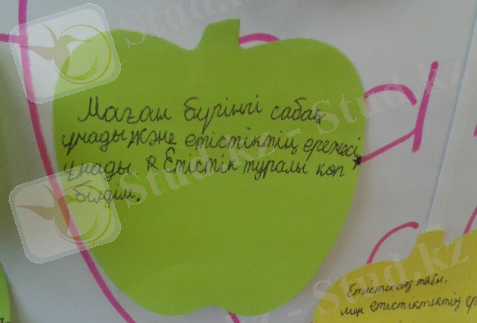 Маған бүгінгі сабақ
ұнады және етістіктің ережесі
ұнады Етістік туралы көп
білдім.
Етістік сөз табы.
мен етістіктің ер
Stud.kz - Stud.kz
Stud.kz